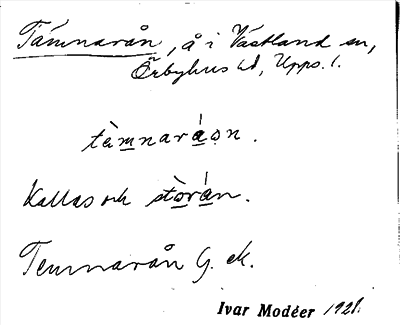 Tämnarån, å i Västland sn,
Örbyhus hd, Upps. l.
tèmnaráọn.
Kallas och stòrán.
Temnarån G. ek.
Ivar Modéer 1921.